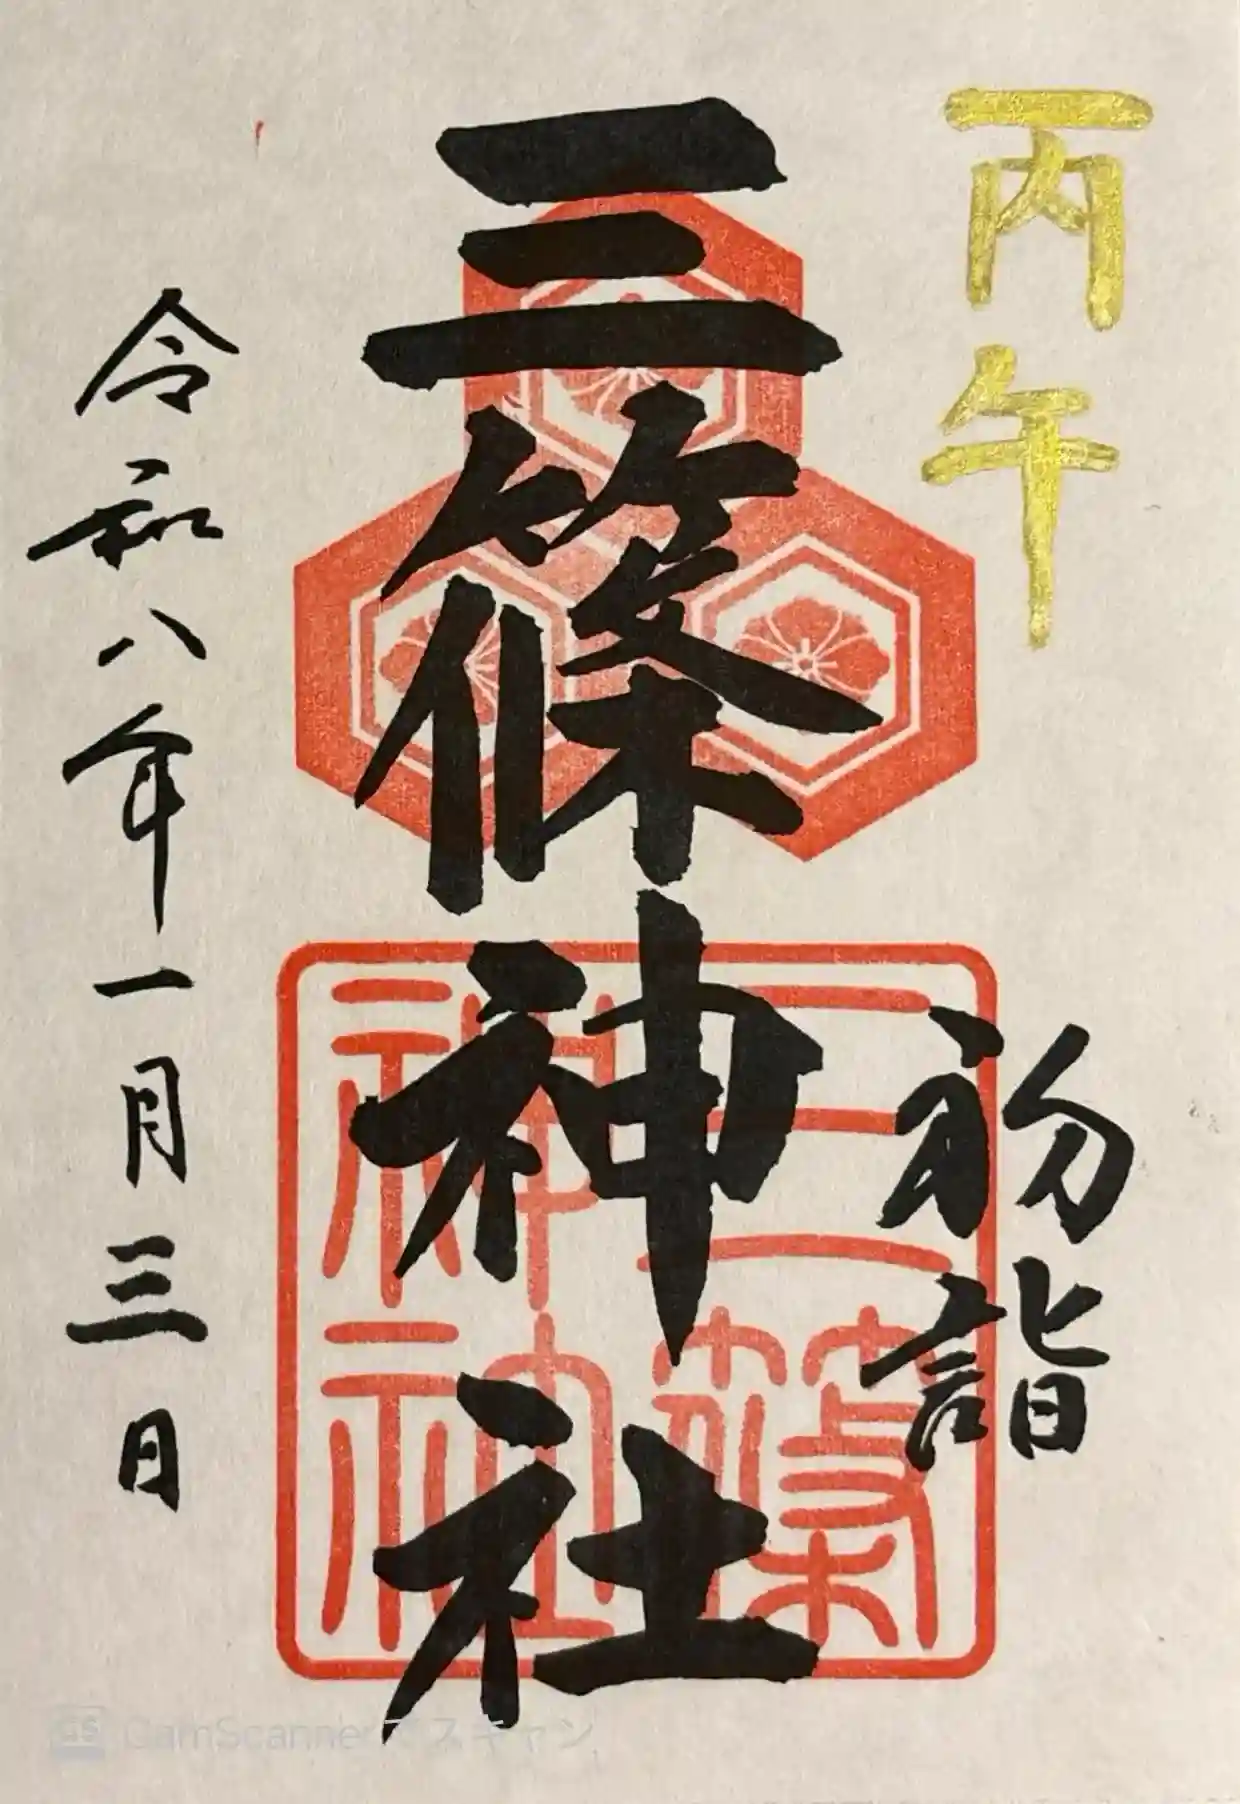 丙午
初詣
三篠神社
三篠神社
令和八年一月三日
CS CamScannerでスキャン